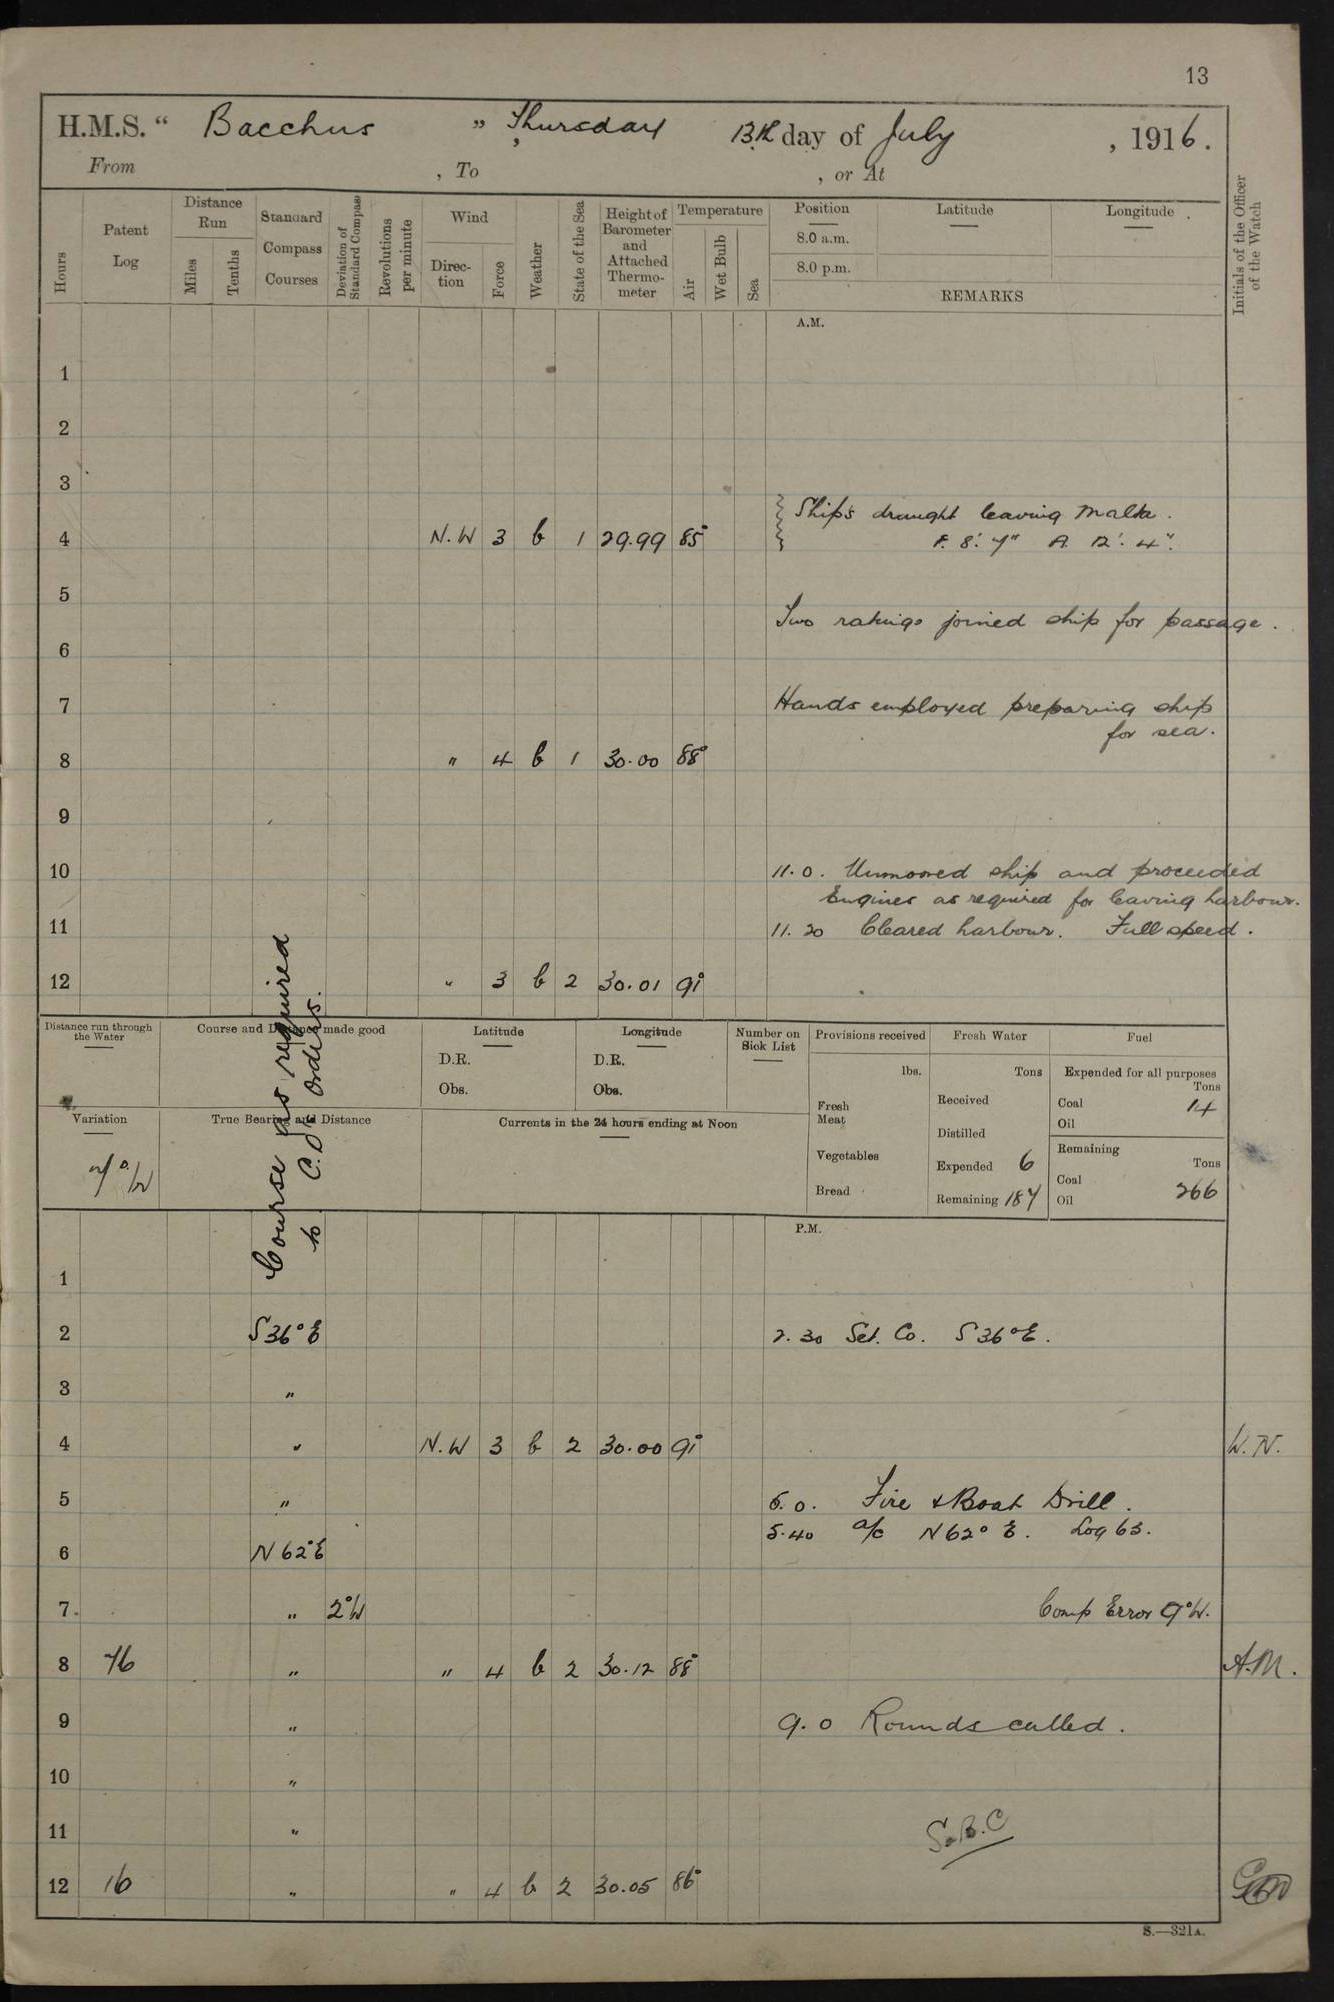 13
H.M.S. “ Bacchus ” , Thursday 13th day of July , 1916.
From , To , or At
Hours
Patent Log
Distance Run
Miles
Tenths
Standard Compass Courses
Deviation of Standard Compass
Revolutions per minute
Wind
Direction
Force
Weather
State of the Sea
Height of Barometer and Attached Thermo-meter
Temperature
Air
Wet Bulb
Sea
Position
Latitude
Longitude
8.0 a.m.
8.0 p.m.
REMARKS
Initials of the Officer of the Watch
A.M.
1
2
3
Ship's draught leaving Malta.
4 N.W 3 b 1 29.99 85° F. 8'. 7" A. 12'. 4".
5
Two ratings joined ship for passage.
6
7 Hands employed preparing ship
for sea.
8 " 4 b 1 30.00 88°
9
10 11.0. Unmoored ship and proceeded
Engines as required for leaving harbour.
11 11.20 Cleared harbour. Full speed.
12 " 3 b 2 30.01 91°
Course as required
to C.O's Orders.
Distance run through the Water
Course and Distance made good
Latitude
D.R.
Obs.
Longitude
D.R.
Obs.
Number on Sick List
Provisions received
lbs.
Fresh Meat
Vegetables
Bread
Fresh Water
Tons
Received
Distilled
Expended 6
Remaining 187
Fuel
Expended for all purposes
Tons
Coal 14
Oil
Remaining
Tons
Coal 266
Oil
Variation
True Bearing and Distance
Currents in the 24 hours ending at Noon
P.M.
1
2 S 36° E 2.30 Set. Co. S 36° E.
3 "
4 " N.W 3 b 2 30.00 91° W.N.
5 " 5.0. Fire & Boat Drill.
5.40 a/c N 62° E. Log 63.
6 N 62° E
7 " 2° W Comp Error 9° W.
8 76 " " 4 b 2 30.12 88° A.M.
9 " 9.0 Rounds called.
10 "
11 " S.B.C
12 16 " " 4 b 2 30.05 86°
S.—321A.